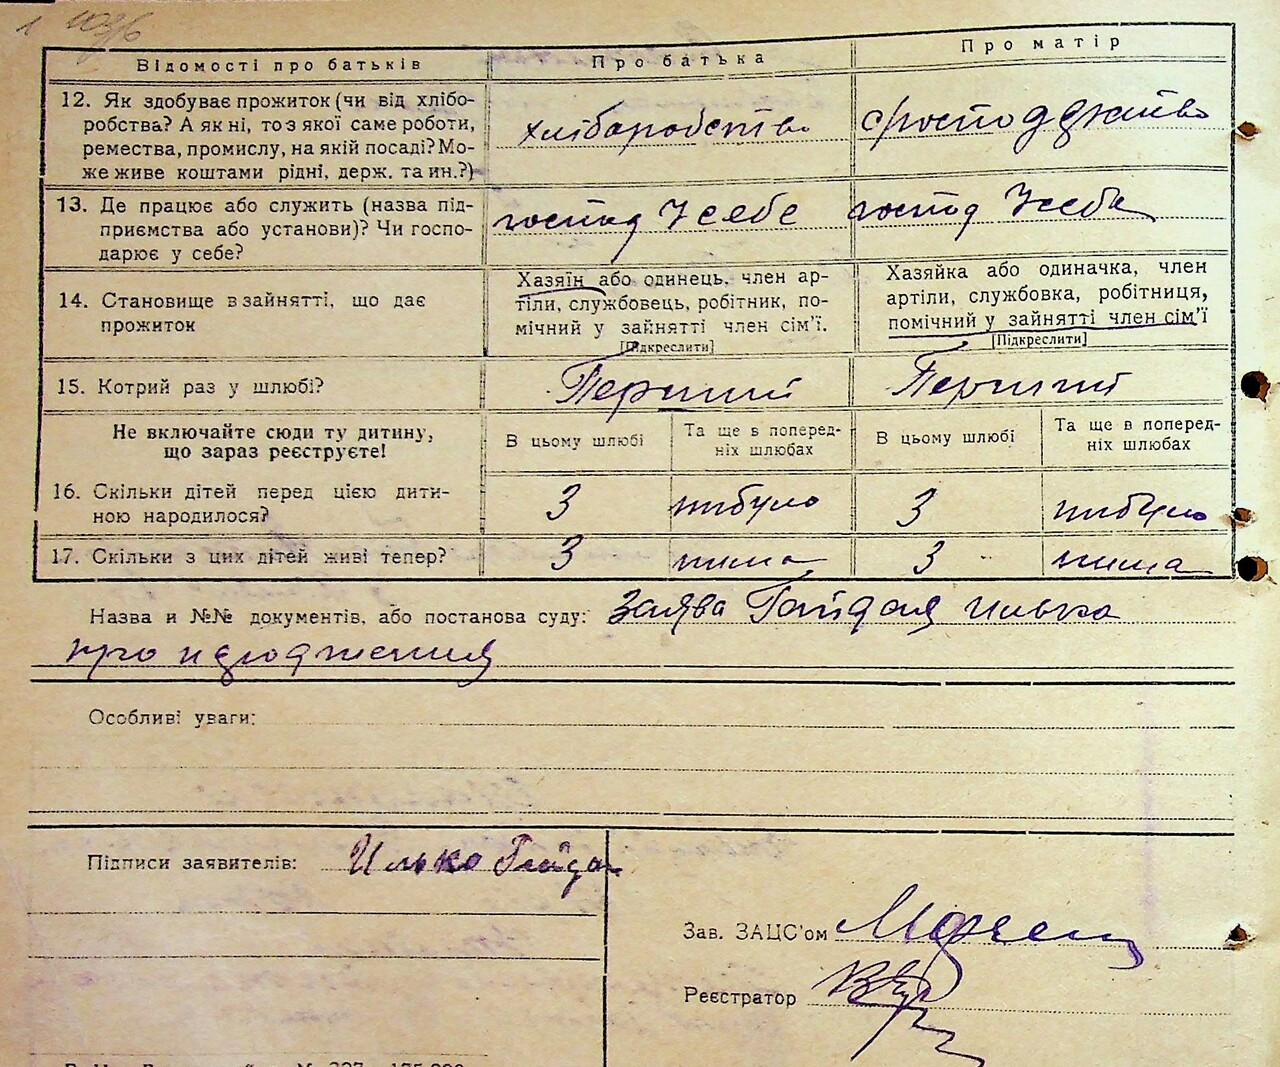 Відомості про батьків Про батька Про матір
12. Як здобуває прожиток (чи від хлібо-
робства? А як ні, то з якої саме роботи,
ремества, промислу, на якій посаді? Мо-
же живе коштами рідні, держ. та ин.?)
хліборобство
13. Де працює або служить (назва під-
приємства або установи)? Чи госпо-
дарює у себе?
господ У себе господ У себе
14. Становище в зайнятті, що дає
прожиток
Хазяїн або одинець, член ар-
тіли, службовець, робітник, по-
мічний у зайнятті член сім'ї.
[Підкреслити]
Хазяйка або одиначка, член
артіли, службовка, робітниця,
помічний у зайнятті член сім'ї
[Підкреслити]
15. Котрий раз у шлюбі? Перший Перший
Не включайте сюди ту дитину,
що зараз реєструєте!
В цьому шлюбі
Та ще в поперед-
ніх шлюбах
В цьому шлюбі
Та ще в поперед-
ніх шлюбах
16. Скільки дітей перед цією дити-
ною народилося?
3 нибуло 3 нибуло
17. Скільки з цих дітей живі тепер? 3 нима 3 нима
Назва и №№ документів, або постанова суду: Заява Гайдая Илька
про народження
Особливі уваги:
Підписи заявителів: Илько Гайда
Зав. ЗАЦС'ом
Реєстратор